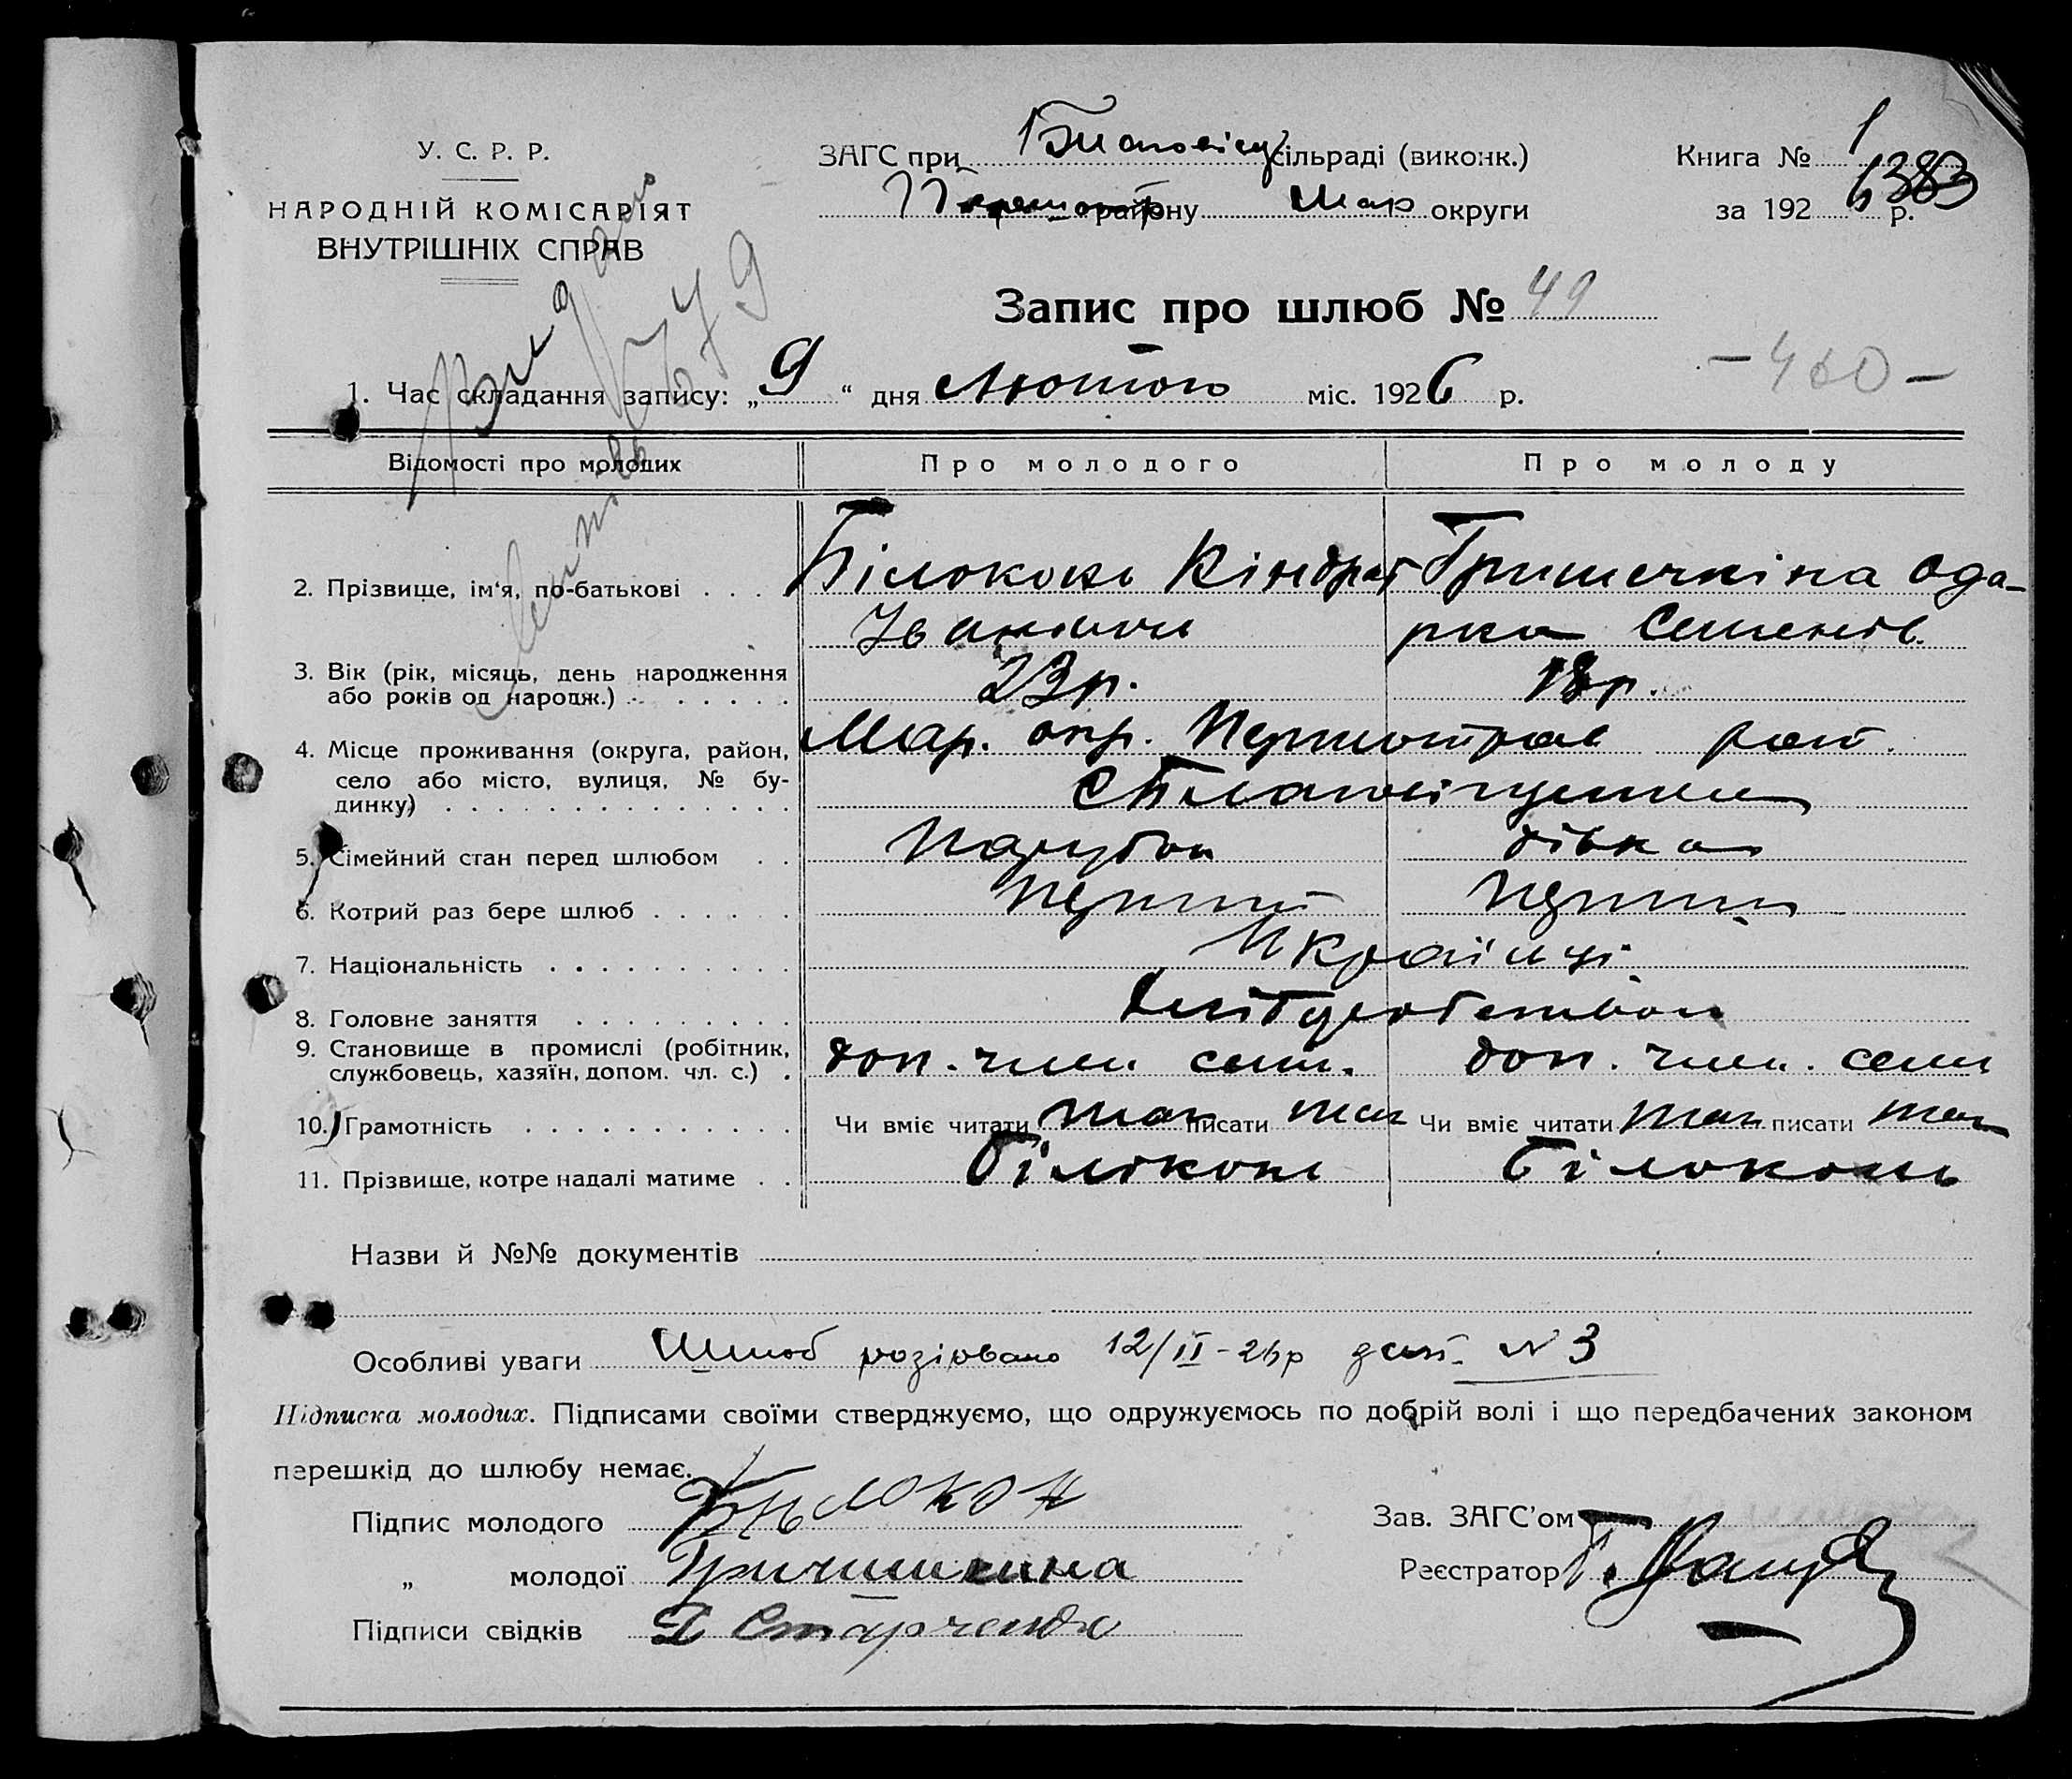 У. С. Р. Р.
НАРОДНІЙ КОМІСАРІЯТ
ВНУТРІШНІХ СПРАВ
ЗАГС при сільраді (виконк.)
району Мар округи
Книга № 1
за 1926 р.
6383
679
Запис про шлюб № 49
- 460 -
1. Час складання запису: „9“ дня Лютого міс. 1926 р.
Відомості про молодих Про молодого Про молоду
2. Прізвище, ім‘я, по-батькові . . . . Білоконь Кіндрат Гришечкіна Ода-
Іванович рка Семенів.
3. Вік (рік, місяць, день народження
або років од народж.) . . . . . . . 23 р. 18 р.
4. Місце проживання (округа, район, Мар. окр. Першотрав рай.
село або місто, вулиця, № бу-
динку) . . . . . . . . . . . . . .
5. Сімейний стан перед шлюбом . . Парубок дівка
6. Котрий раз бере шлюб . . . . . . Перший Перший
7. Національність . . . . . . . . . . Українці
8. Головне заняття . . . . . . . . . Хліборобством
9. Становище в промислі (робітник, доп. член. сем. доп. член. сем
службовець, хазяїн, допом. чл. с.) .
10. Грамотність . . . . . . . . . . . Чи вміє читати так писати так Чи вміє читати так писати так
11. Прізвище, котре надалі матиме . . Білоконь Білоконь
Назви й №№ документів
Особливі уваги Шлюб розірвано 12/II-26р № 3
Підписка молодих. Підписами своїми стверджуємо, що одружуємось по добрій волі і що передбачених законом
перешкід до шлюбу немає.
Підпис молодого Билокон
„ молодої Гричишкина
Підписи свідків Старченко
Зав. ЗАГС’ом
Реєстратор